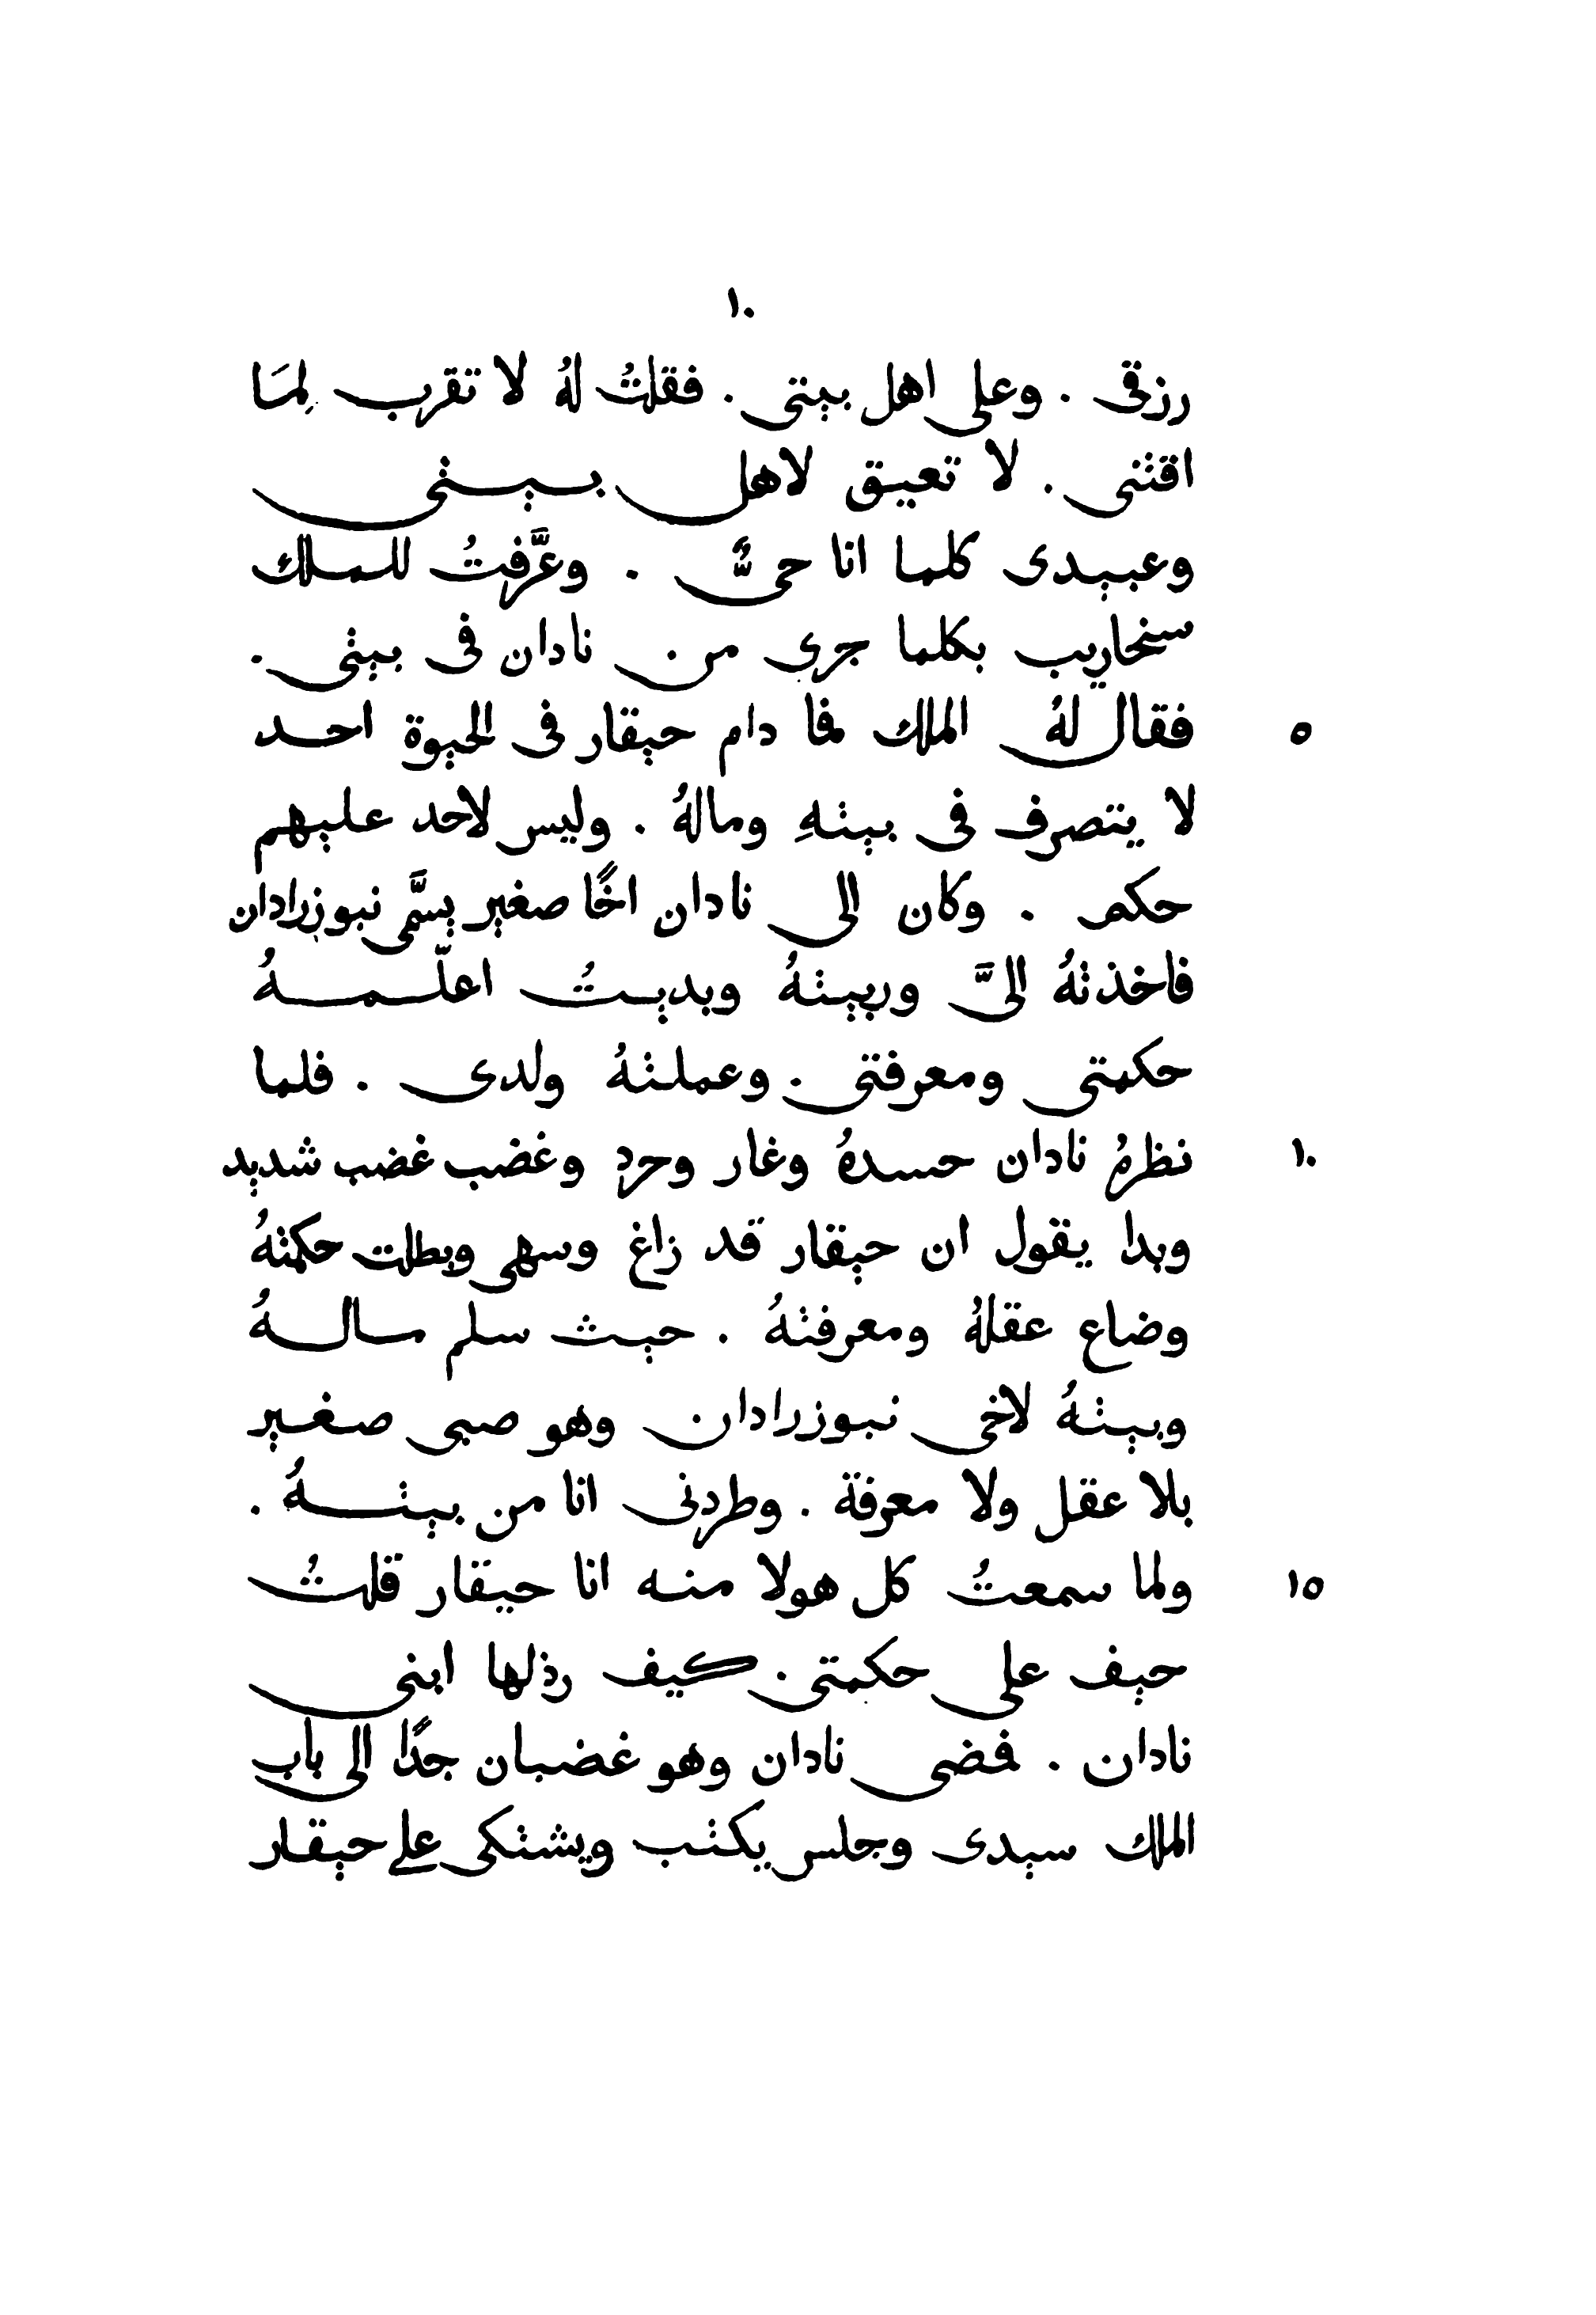 ١٠
رزقى . وعلى اهل بيتى . فقلتُ لهُ لا تقرب لِمَا
اقتنى . لا تعيق لاهل بيتى
وعبيدى كلما انا حىٌّ . وعرَّفتُ للملك
سنحاريب بكلما جرى من نادان فى بيتى .
فقال لهُ الملك لما دام حيقار فى الحيوة احد ٥
لا يتصرف فى بيتهِ ومالهُ . وليس لاحد عليهم
حكم . وكان الى نادان اخًا صغير يسَّمى نبوزرادان
فاخذتهُ الىَّ وربيتهُ وبديتُ اعلّمهُ
حكمتى ومعرفتى . وعملتهُ ولدى . فلما
نظرهُ نادان حسدهُ وغار وحرد وغضب غضب شديد ١٠
وبدا يقول ان حيقار قد زاغ وسهى وبطلت حكمتهُ
وضاع عقلهُ ومعرفتهُ . حيث سلم مالهُ
وبيتهُ لاخى نبوزرادان وهو صبى صغير
بلا عقل ولا معرفة . وطردنى انا من بيتهُ .
ولما سمعتُ كل هولا منه انا حيقار قلتُ ١٥
حيف على حكمتى . كيف رذلها ابنى
نادان . فمضى نادان وهو غضبان جدًا الى باب
الملك سيدى وجلس يكتب ويشتكى على حيقار